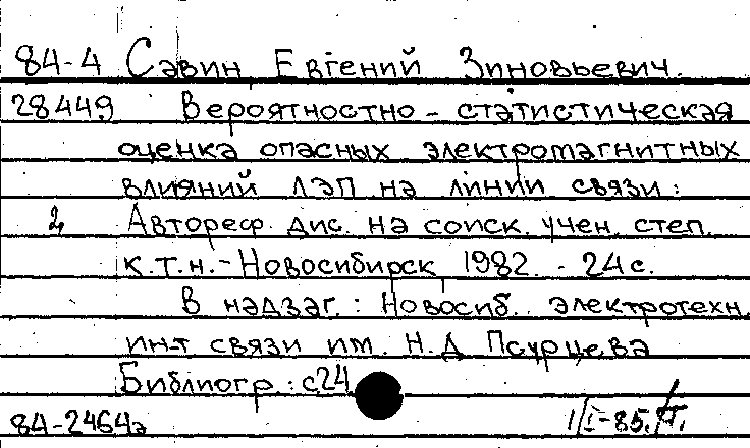 84-4 Савин, Евгений Зиновьевич.
28449 Вероятностно-статистическая
оценка опасных электромагнитных
влияний ЛЭП на линии связи:
2 Автореф. дис. на соиск. учен. степ.
к.т.н. - Новосибирск, 1982. - 24 с.
В надзаг.: Новосиб. электротехн.
ин-т связи им. Н.Д. Псурцева
Библиогр.: с.24
84-2464а